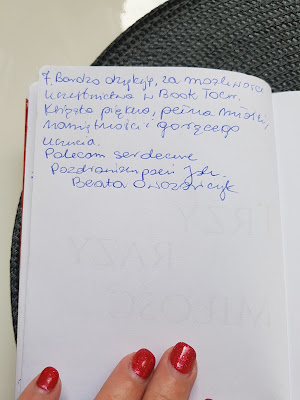 7. Bardzo dziękuję, za możliwość
uczestnictwa w Book Tour.
Książka piękna, pełna miłości,
namiętności i gorącego
uczucia.
Polecam serdecznie
Pozdrawiam pani
Beata
TRZ
RAZY
MIŁOŚĆ